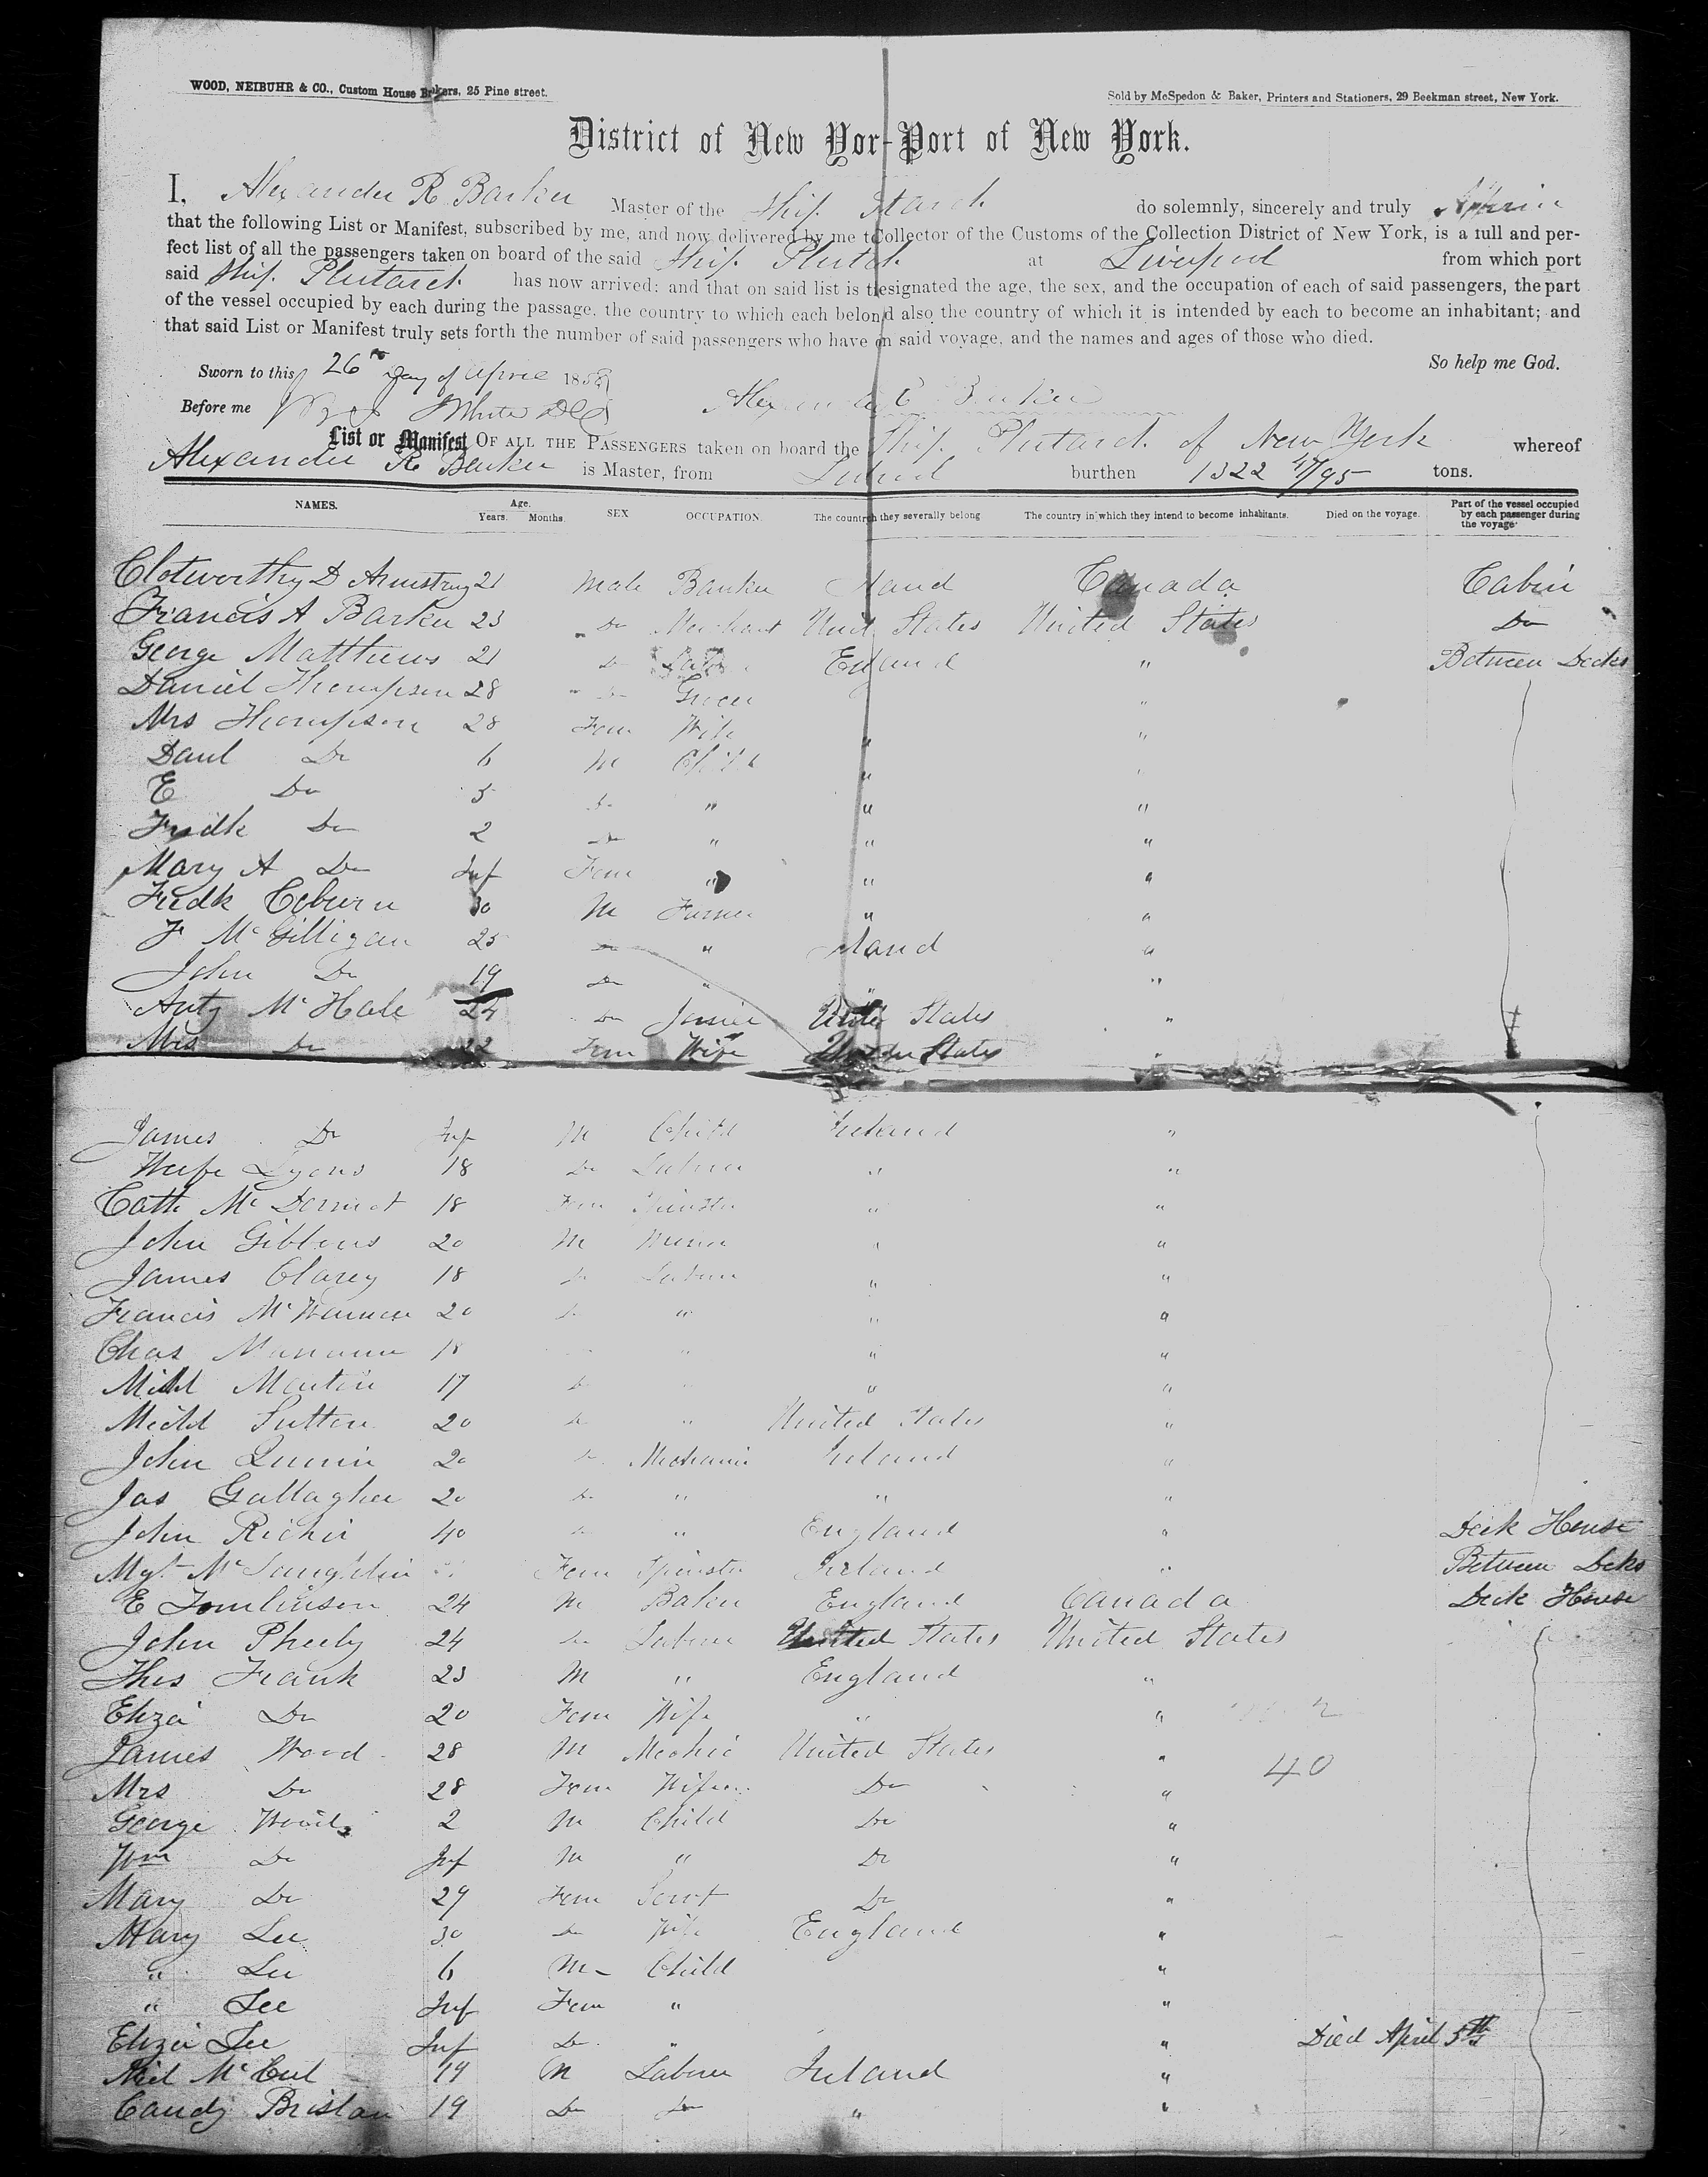 WOOD, NEIBUHR & CO., Custom House Brokers, 25 Pine street.
Sold by McSpedon & Baker, Printers and Stationers, 29 Beekman street, New York.
District of New Yor-Port of New York.
I, Alexander R Barker Master of the Ship tarch do solemnly, sincerely and truly
that the following List or Manifest, subscribed by me, and now delivered by me t Collector of the Customs of the Collection District of New York, is a full and per-
fect list of all the passengers taken on board of the said Ship Plutch at Liverpool from which port
said Ship Plutarch has now arrived; and that on said list is t esignated the age, the sex, and the occupation of each of said passengers, the part
of the vessel occupied by each during the passage, the country to which each belon d also the country of which it is intended by each to become an inhabitant; and
that said List or Manifest truly sets forth the number of said passengers who have on said voyage, and the names and ages of those who died.
So help me God.
Sworn to this 26th Day of April 1858
Before me White
List or Manifest OF ALL THE PASSENGERS taken on board the Ship Plutarch of New York whereof
Alexander R Barker is Master, from burthen 1322 47/95 tons.
NAMES. Age. Years. Months. SEX OCCUPATION. The countr h they severally belong The country in which they intend to become inhabitants. Died on the voyage. Part of the vessel occupied by each passenger during the voyage
Clotworthy D Armstrong 21 Male Banker land Canada Cabin
Francis A Barker 23 Do Merchant Unit States United States Do
George Matthews 21 Do England " Between Decks
Daniel Thompson 28 Do Grocer "
Mrs Thompson 28 Fem Wife " "
Danl Do 6 M Child " "
E Do 3 Do " " "
Fredk Do 2 Do " " "
Mary A Do Inf Fem " " "
Fredk Coburn 30 M Farmer " "
F McGilligan 25 Do " land "
John Do 19 Do " " "
Anty McHale 24 Do United States "
Mrs Do 22 Fem Wife United States "
James Do Inf M Child Ireland "
Lyons 18 Do Labour " "
Cath McDermot 18 Fem Spinster " "
John Gibbons 20 M " "
James Clarey 18 Do Labour " "
Francis 20 Do " " "
Chas 18 " " "
Michl Martin 17 Do " "
Michl Sutton 20 Do " United States "
John Quinn 20 Do Mechanic Ireland "
Jas Gallagher 20 Do " " "
John Richir 40 Do " England " Deck House
Mgt McLaughlin Fem Spinster Ireland " Between Deks
E Tomlinson 24 M Baker England Canada Deck House
John Pheely 24 Do Labour United States United States
Thos Frank 23 M " England "
Eliza Do 20 Fem Wife " "
James Wood 28 M Mechic United States "
40
Mrs Do 28 Fem Wife Do "
George Wood 2 M Child Do "
Wm Do Inf M " Do "
Mary Do 29 Fem Servt Do "
Mary Lee 30 Do Wife England "
" Lee 6 M Child "
" Lee Inf Fem " "
Eliza Lee Inf Do " " Died April 5th
Neil McCul 19 M Labour Ireland "
Candy Brislan 19 Do Do " "